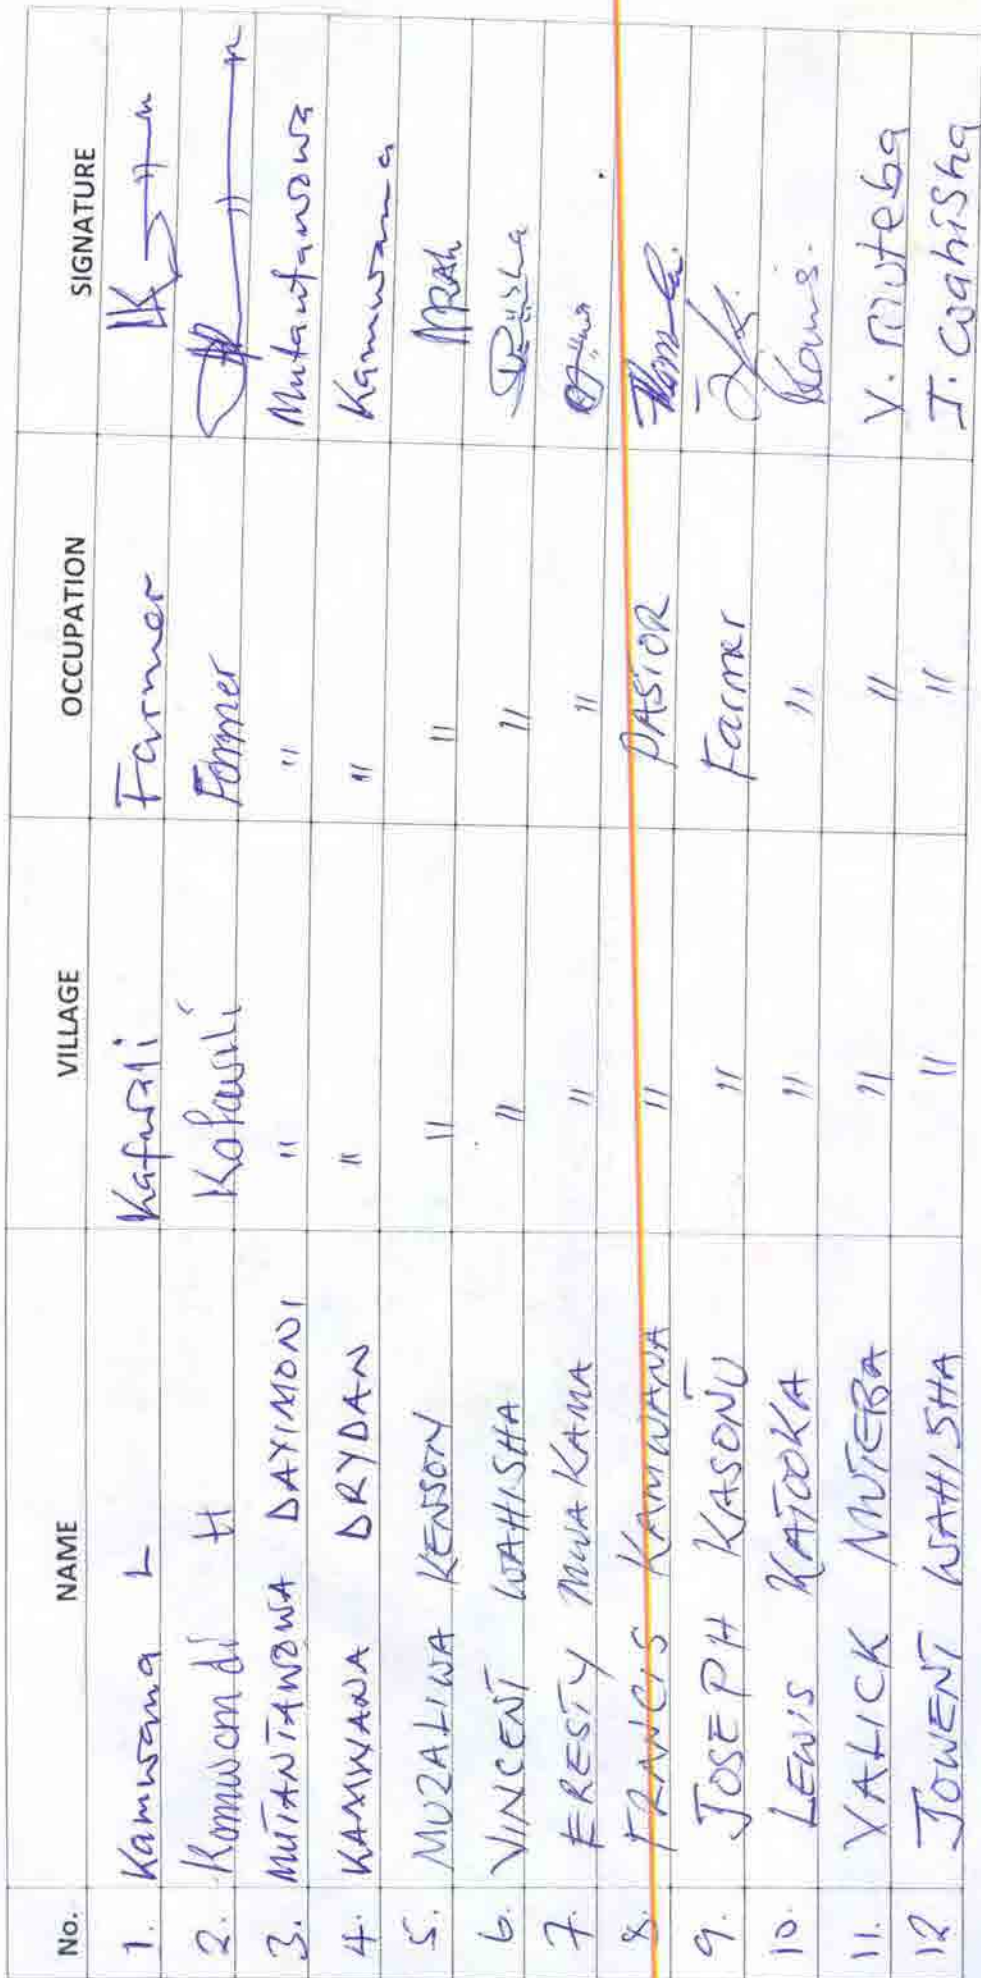 No. NAME VILLAGE OCCUPATION SIGNATURE
1. Kamwana L Kafwali Farmer
2. Kamwendi H Kafwali Farmer
3. MUTANTAWOWA DAYIMONI " " Mutantawowa
4. KAMWANA DRYDAN " " Kamwana
5. MUZALIWA KENSON " "
6. VINCENT WAHISHA " "
7. ERESTY MWAKAMA " "
8. FRANCIS KAMWANA " PASTOR
9. JOSEPH KASONU " Farmer
10. LEWIS KATOOKA " "
11. YALICK MUTEBA " " Y. Muteba
12 JOWENT WAHISHA " " J. Wahisha